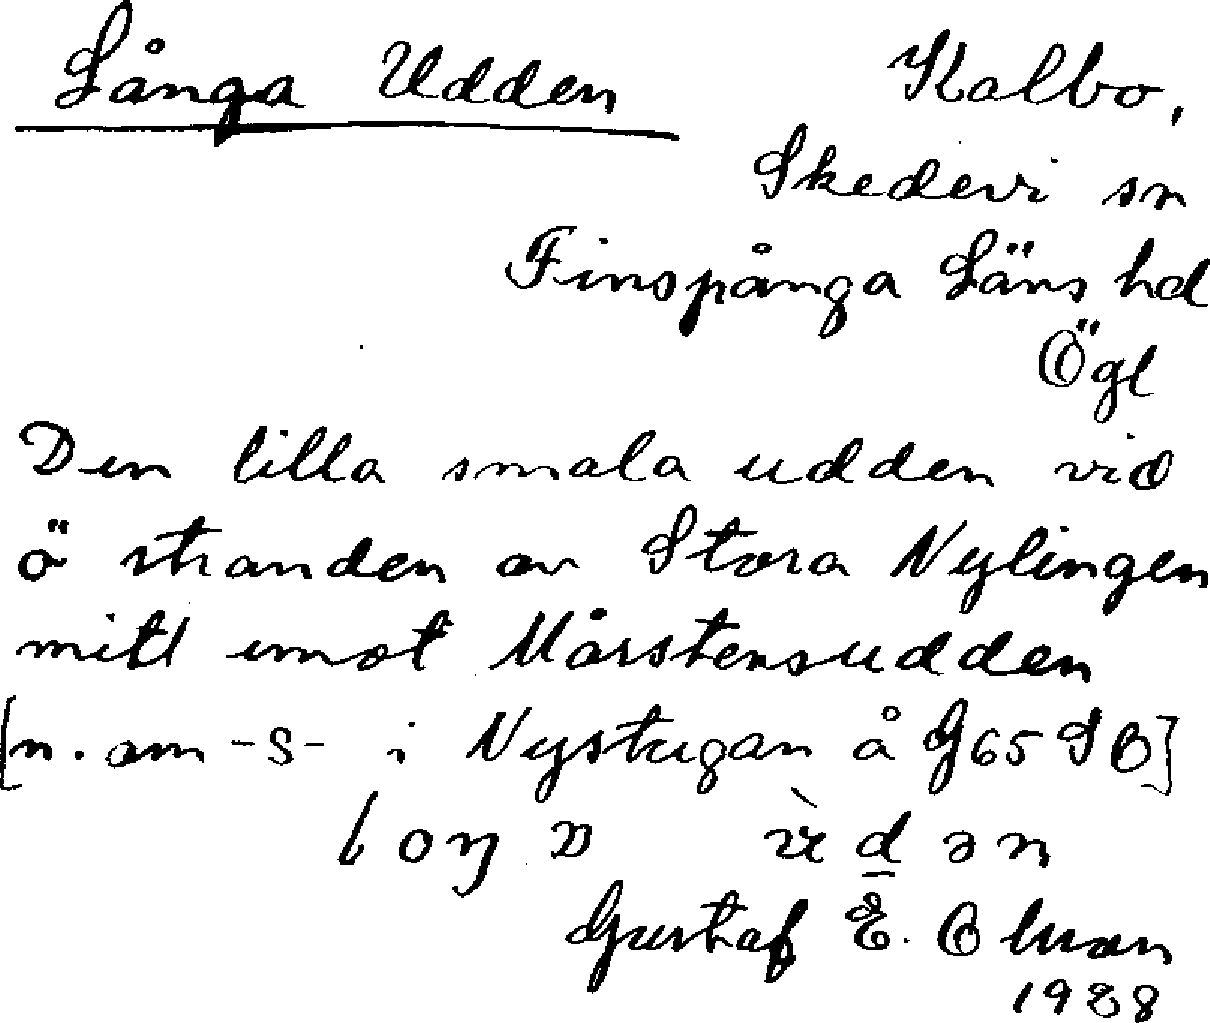 Långa Udden Kalbo,
Skedevi sn
Finspånga Läns hd
Ögl
Den lilla smala udden vid
ö stranden av Stora Nylingen
mitt emot Mårstensudden
[n. am -S- i Nystugan å G65 SB]
Gustaf E.